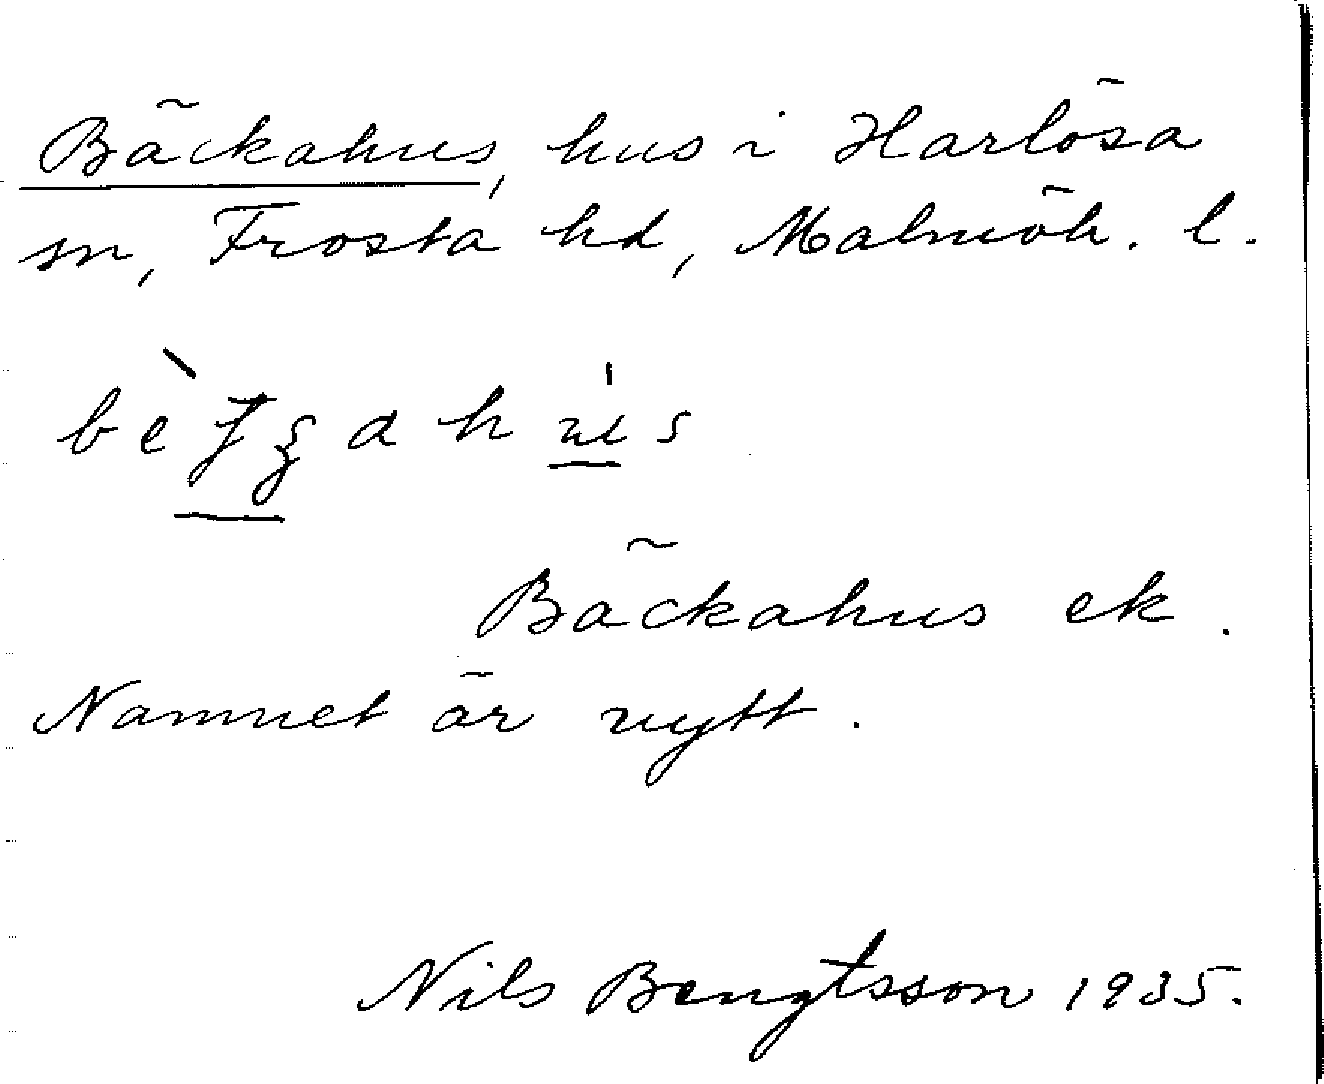 Bäckahus, hus i Harlösa
sn, Frosta hd, Malmöh. l.
Bäckahus ek.
Namnet är nytt.
Nils Bengtsson 1935.